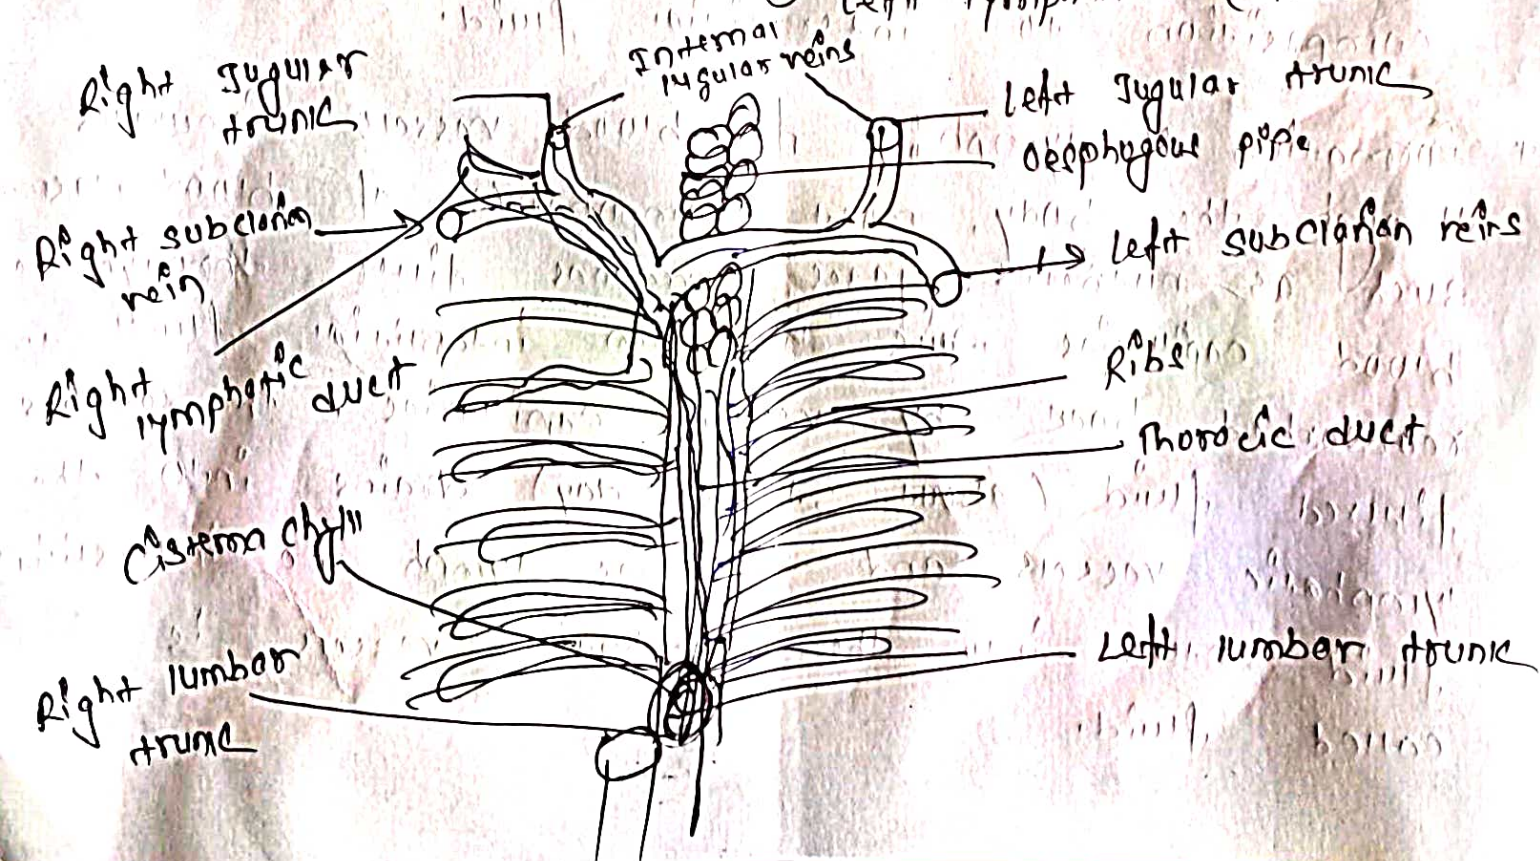 Right Jugular
trunk
Internal
jugular veins
Left Jugular trunk
Oesphogous pipe
Right subclavian
vein
Left subclavian veins
Right
lymphatic duct
Ribs
Thoracic duct
Cisterna Chylii
Right lumbar
trunk
Left lumbar trunk